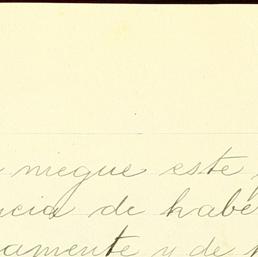 niegue este
ncia de habé
amente y de